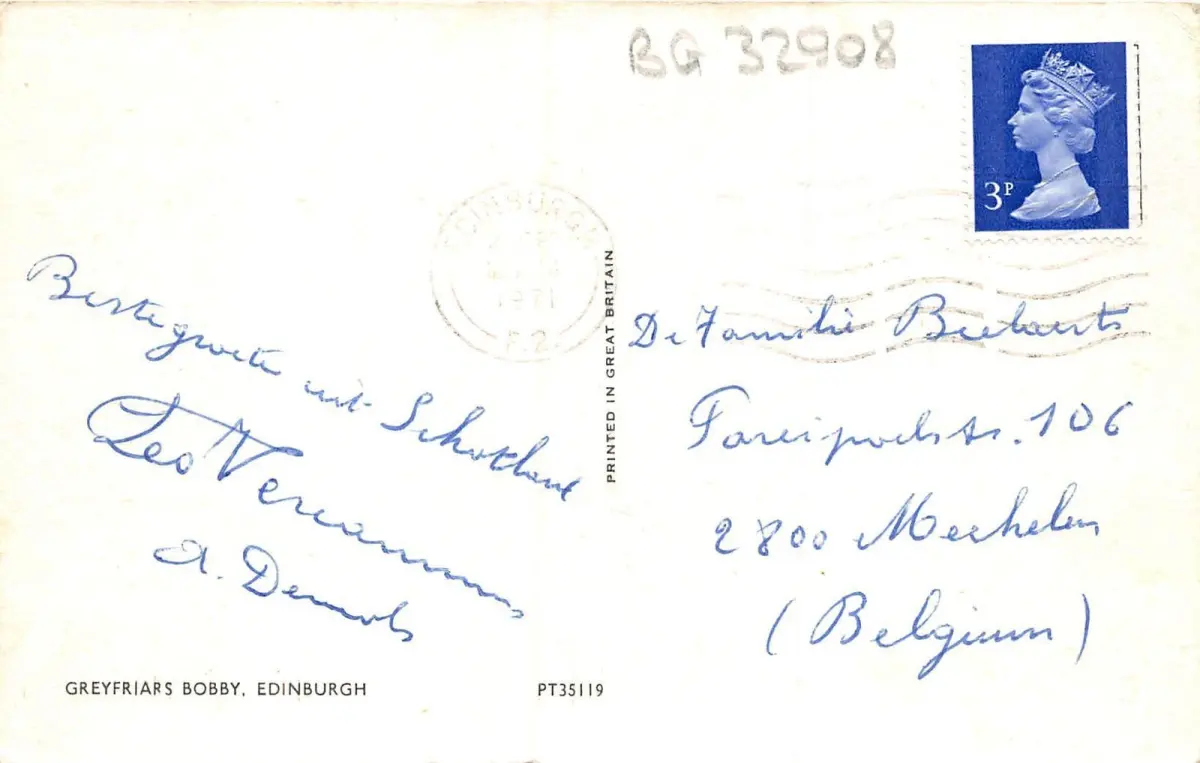 BG 32908
3P
EDINBURGH
1971
PRINTED IN GREAT BRITAIN
Beste groeten uit Schotland
Leo Vercammen
A. Demols
De Familie Beelaerts
106
2800 Mechelen
(Belgium)
GREYFRIARS BOBBY, EDINBURGH
PT35119